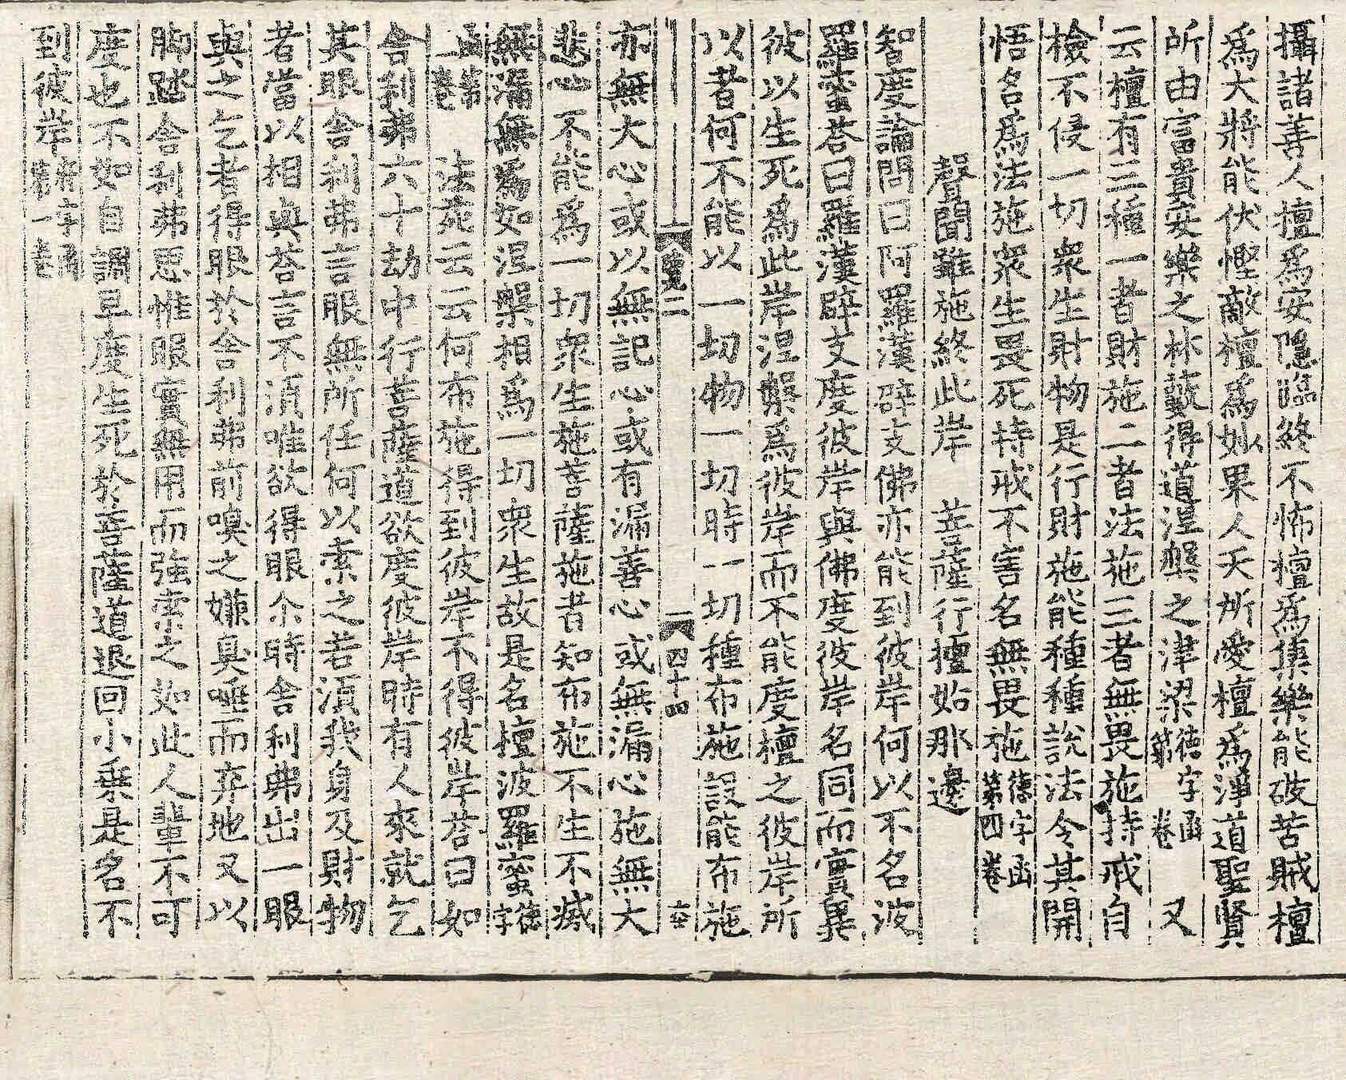 攝諸善人檀爲安隱臨終不怖檀爲集樂能破苦賊檀
爲大將能伏慳敵檀爲妙果人天所愛檀爲淨道聖賢
所由富貴安樂之林藪得道涅槃之津梁德字函第 卷 又
云檀有三種一者財施二者法施三者無畏施持戒自
檢不侵一切衆生財物是行財施能種種說法令其開
悟名爲法施衆生畏死持戒不害名無畏施德字函第四卷
聲聞雖施終此岸 菩薩行檀始那邊
智度論問曰阿羅漢辟支佛亦能到彼岸何以不名波
羅蜜荅曰羅漢辟支度彼岸與佛度彼岸名同而實異
彼以生死爲此岸涅槃爲彼岸而不能度檀之彼岸所
以者何不能以一切物一切時一切種布施設能布施
二 四十四 六
亦無大心或以無記心或有漏善心或無漏心施無大
悲心不能爲一切衆生施菩薩施者知布施不生不滅
無漏無爲如涅槃相爲一切衆生故是名檀波羅蜜德字
函第 卷 法苑云云何布施得到彼岸不得彼岸荅曰如
舍利弗六十劫中行菩薩道欲度彼岸時有人來就乞
其眼舍利弗言眼無所任何以索之若須我身及財物
者當以相與荅言不須唯欲得眼尒時舍利弗出一眼
與之乞者得眼於舍利弗前嗅之嫌臭唾而弃地又以
脚踏舍利弗思惟眼實無用而強索之如此人輩不可
度也不如自調早度生死於菩薩道退回小乗是名不
到彼岸 字函第一卷